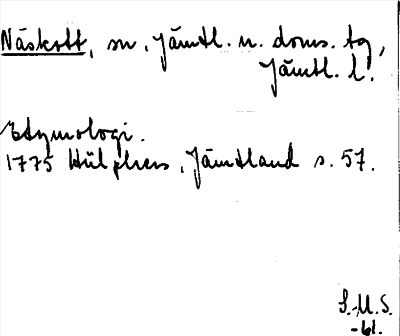 Näskott, sn, Jämtl. n. doms. tg,
Jämtl. l.
Etymologi.
1775 Hülphers, Jämtland s. 57.
S.M.S.
-61.